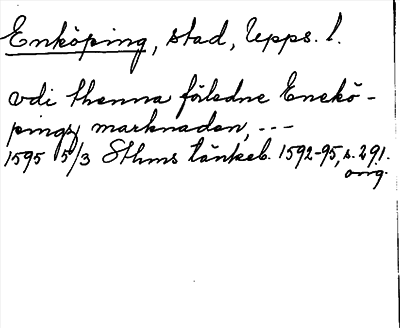 Enköping, stad, Upps. l.
vdi thenna förledne Enekö-
pings marknaden, ---
1595 5/3 Sthms tänkeb. 1592-95, s. 291.
orig.